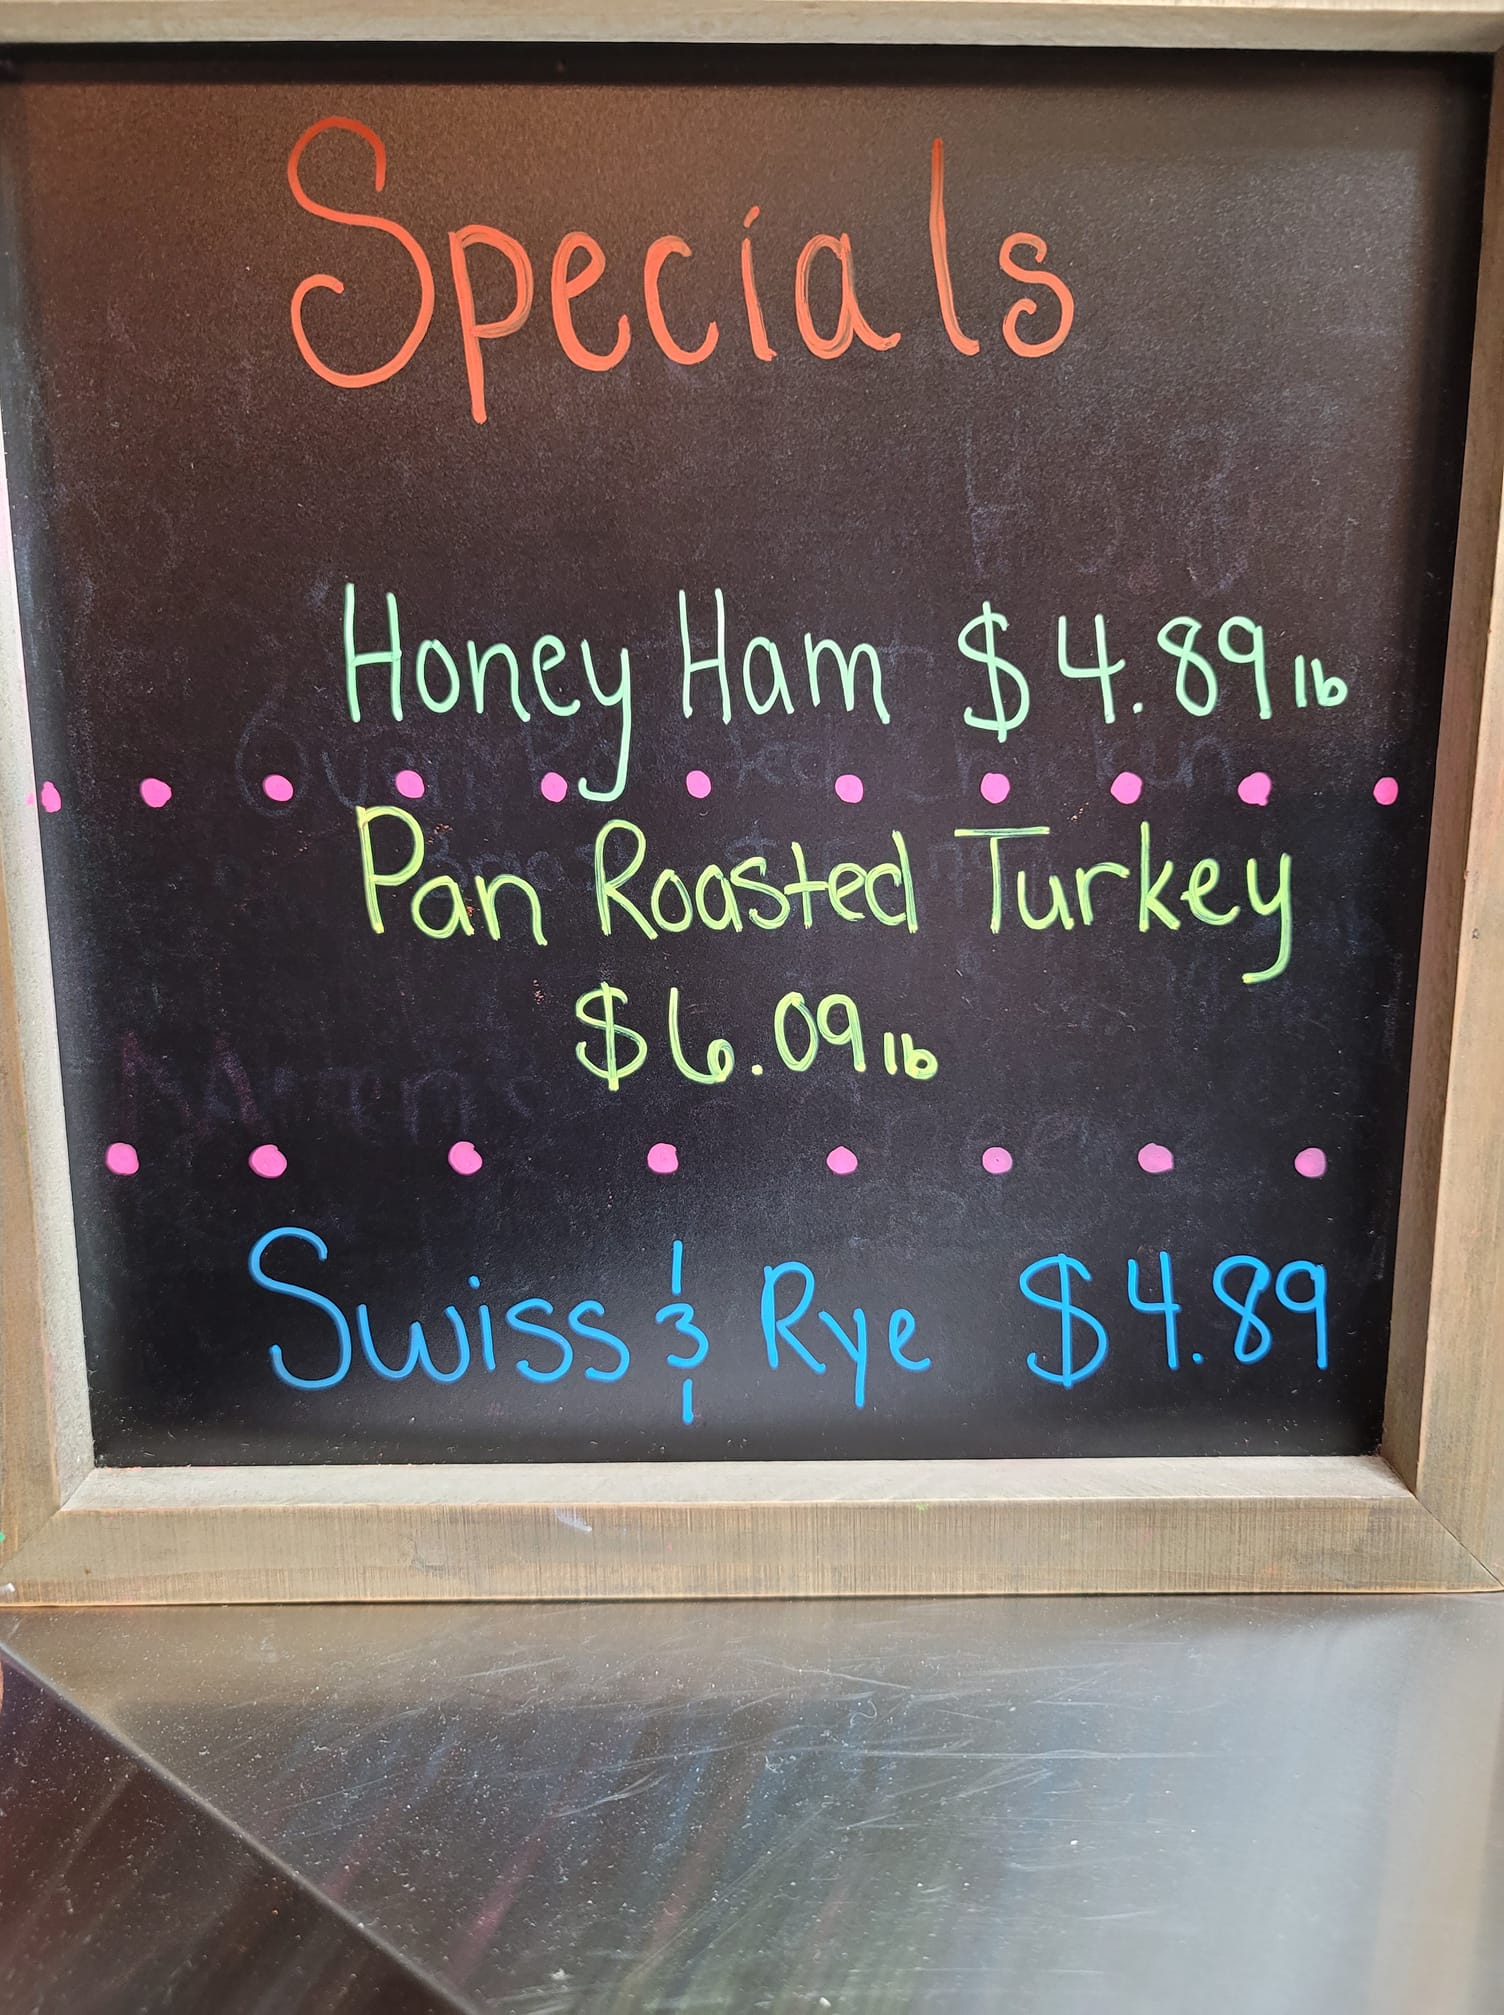 Specials
Honey Ham $4.89 lb
Pan Roasted Turkey
$6.09 lb
Swiss & Rye $4.89